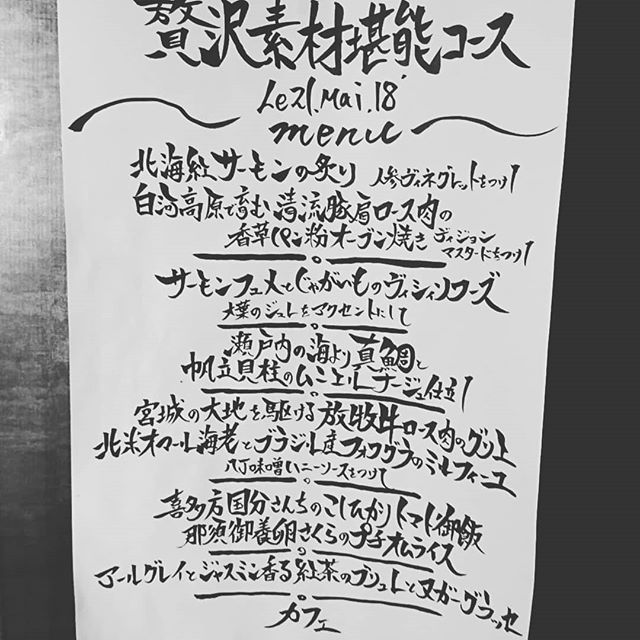 贅沢素材堪能コース
Le 21. Mai. 18'
menu
北海紅サーモンの炙り 人参ヴィネグレットをつけて
白河高原で育む清流豚肩ロース肉の
香草パン粉オーブン焼き ディジョン
マスタードをつけて
サーモンフュメとじゃがいものヴィシソワーズ
大葉のジュレをアクセントにして
瀬戸内の海より真鯛と
帆立貝柱のムニエル ナージュ仕立て
宮城の大地を駆ける放牧牛ロース肉のグリエ
北米オマール海老とブラジル産フォアグラのミルフィーユ
八丁味噌ハニーソースをつけて
喜多方国分さんちのこしひかりトマト御飯
那須御養卵さくらのプチオムライス
アールグレイとジャスミン香る紅茶のブリュレとヌガーグラッセ
カフェ